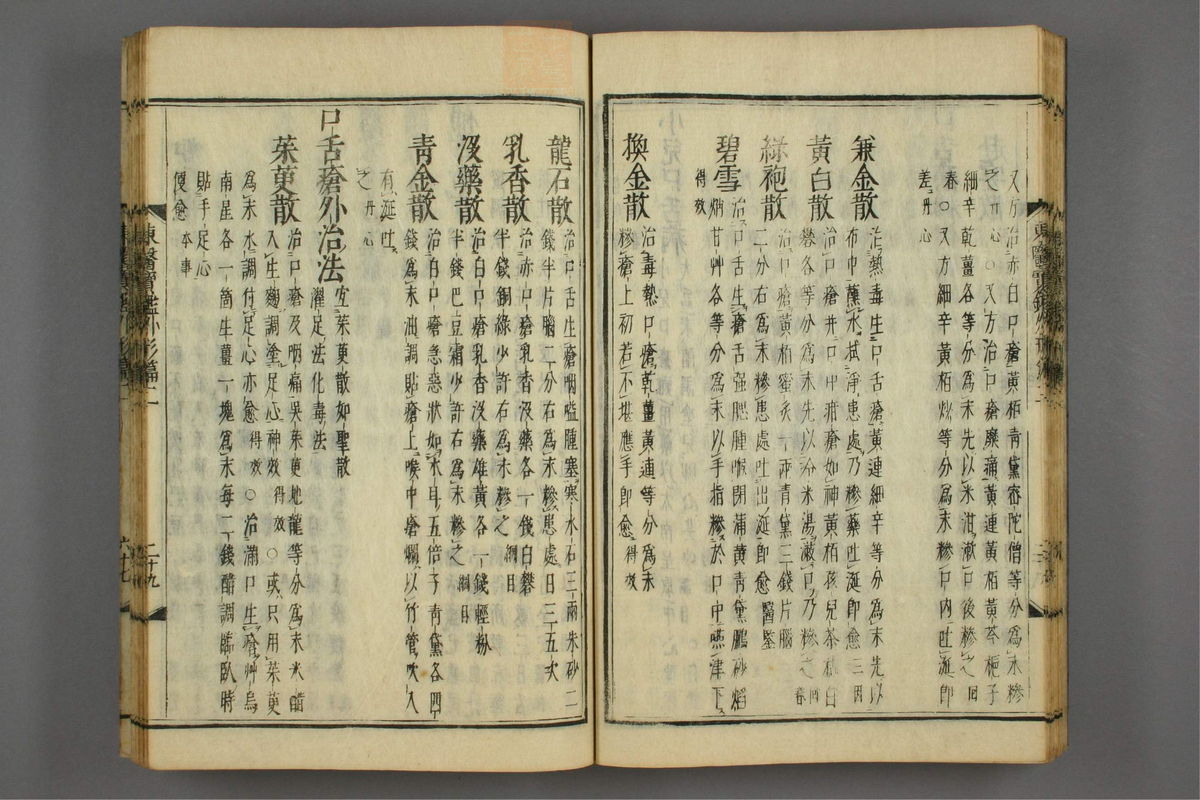 又方治赤白口瘡黃栢青黛密陀僧等分爲末糝
之丹心○又方治口瘡糜痛黃連黃栢黃芩梔子
細辛乾薑各等分爲末先以米泔漱口後糝之回
春○又方細辛黃栢炒等分爲末糝口內吐涎卽
差丹心
兼金散治熱毒生口舌瘡黃連細辛等分爲末先以
布巾蘸水拭淨患處乃糝藥吐涎卽愈三因
黃白散治口瘡幷口中疳瘡如神黃栢孩兒茶枯白
礬各等分爲末先以冷米湯漱口乃糝之回春
綠袍散治口瘡黃栢蜜炙一兩青黛三錢片腦
二分右爲末糝患處吐出涎卽愈醫鑒
碧雪治口舌生瘡舌强腮腫喉閉蒲黃青黛鵬砂焰
焇甘艸各等分爲末以手指糝於口中嚥津下
得效
換金散治毒熱口瘡乾薑黃連等分爲末
糝瘡上初若不堪應手卽愈得效
東醫寶鑑外形篇二
龍石散治口舌生瘡咽嗌腫塞寒水石三兩朱砂二
錢半片腦二分右爲末糝患處日三五次
乳香散治赤口瘡乳香沒藥各一錢白礬
半錢銅綠少許右爲末糝之綱目
沒藥散治白口瘡乳香沒藥雄黃各一錢輕粉
半錢巴豆霜少許右爲末糝之綱目
青金散治白口瘡急惡狀如木耳五倍子青黛各四
錢爲末油調貼瘡上喉中瘡爛以竹管吹入
有涎吐
之丹心
口舌瘡外治法宜茱萸散如聖散
濯足法化毒法
茱萸散治口瘡及咽痛吳茱萸地龍等分爲末米醋
入生麪調塗足心神效得效○或只用茱萸
爲末水調付足心亦愈得效○治滿口生瘡艸烏
南星各一箇生薑一塊爲末每二錢醋調臨臥時
貼手足心
便愈本事
東醫寶鑑外形篇二
二十九